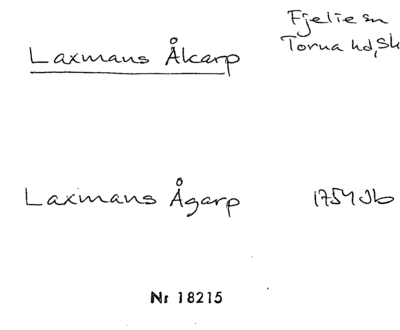 Laxmans Åkarp
Fjelie sn
Torna hd, Sk
Laxmans Ågarp
1754 Jb
Nr 18215